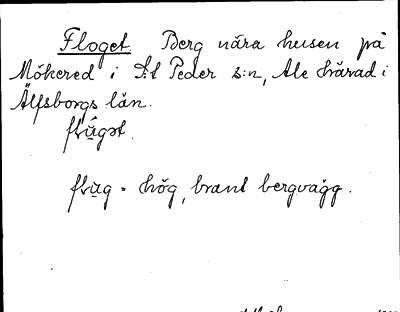 Floget. Berg nära husen på
Mökered i S:t Peder s:n, Ale härad i
Älfsborgs län.
flu̱gət.
flu̱g = hög, brant bergvägg.